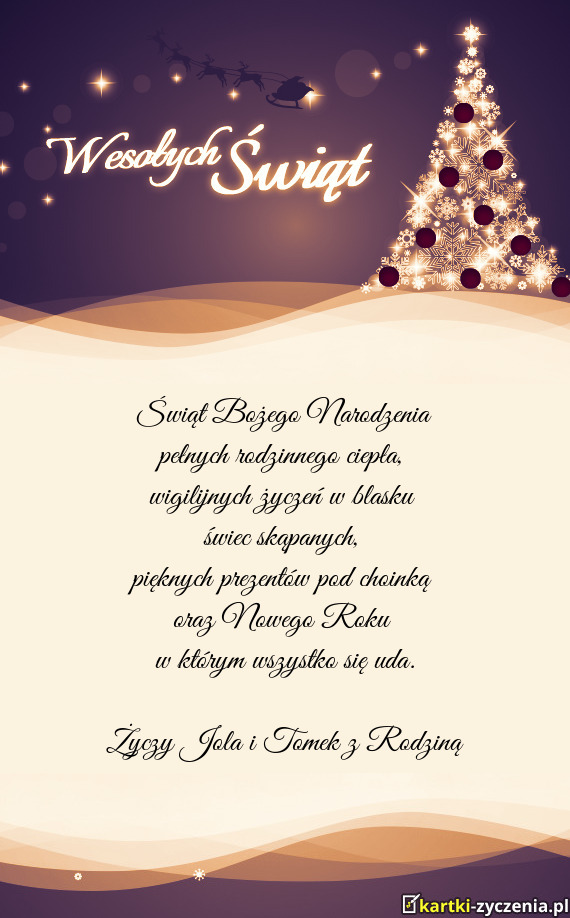 Wesołych Świąt
Świąt Bożego Narodzenia
pełnych rodzinnego ciepła,
wigilijnych życzeń w blasku
świec skąpanych,
pięknych prezentów pod choinką
oraz Nowego Roku
w którym wszystko się uda.
Życzy Jola i Tomek z Rodziną
kartki-zyczenia.pl